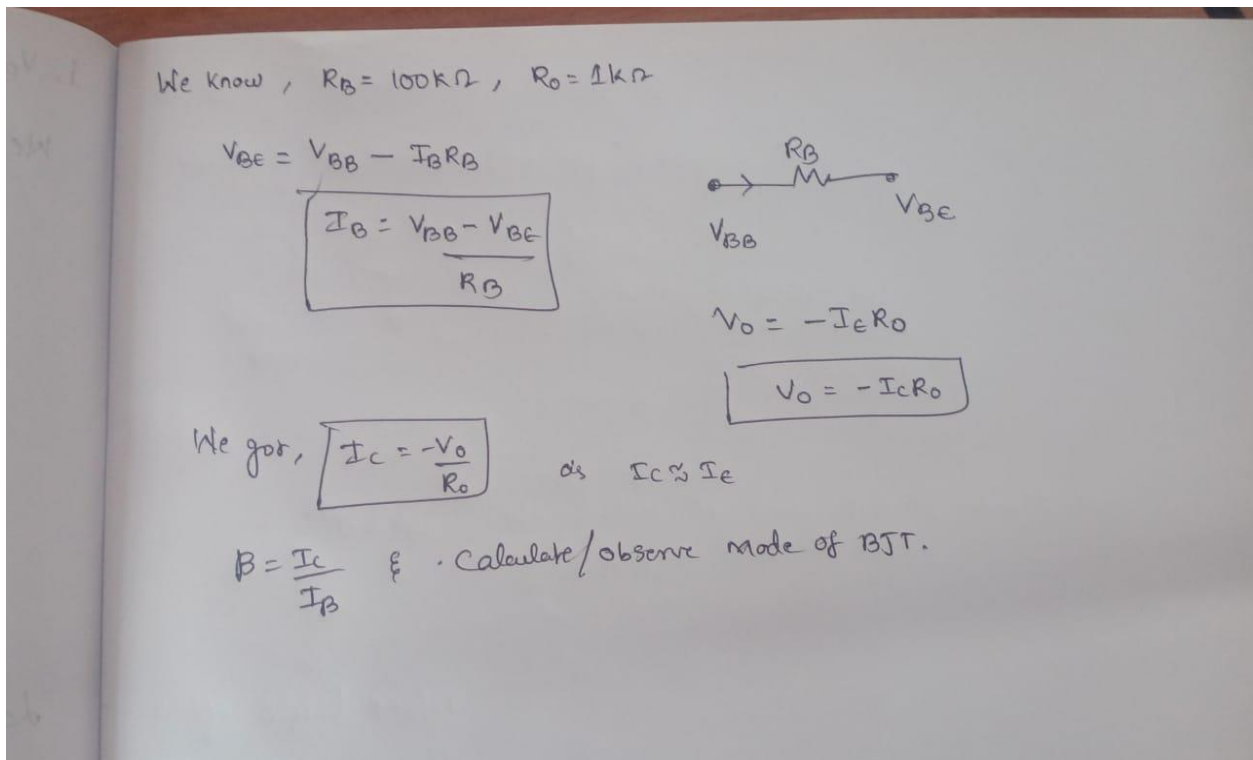 We know, R_B = 100KΩ, R_O = 1kΩ
V_BE = V_BB - I_B R_B
I_B = V_BB - V_BE
R_B
R_B
V_BB
V_BE
V_O = - I_E R_O
V_O = - I_C R_O
We got, I_C = -V_O
R_O
as I_C ≈ I_E
β = I_C
I_B
& . Calculate/observe mode of BJT.